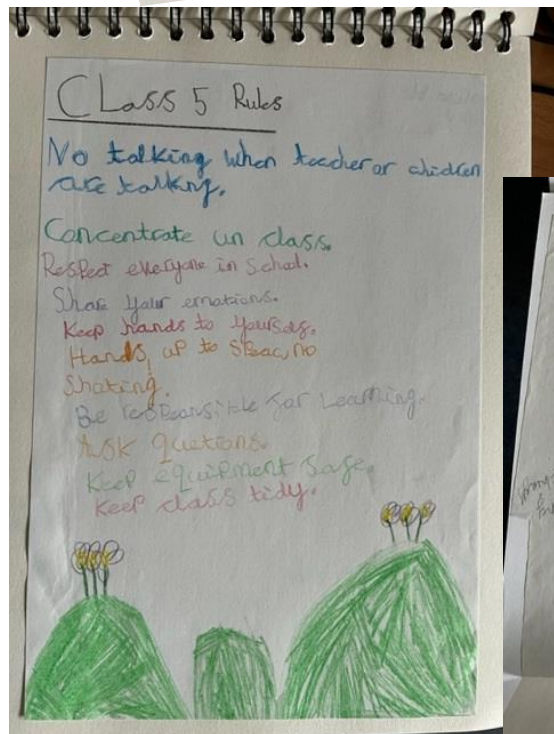 CLass 5 Rules
No talking when teacher or chidren
are talking.
Concentrate in class.
Respect everyone in School.
Share your emotions.
Keep hands to yourself.
Hands up to Speac, no
Shoting.
Be responsible for Learning.
Ask quetions.
Keep equipment safe.
Keep class tidy.